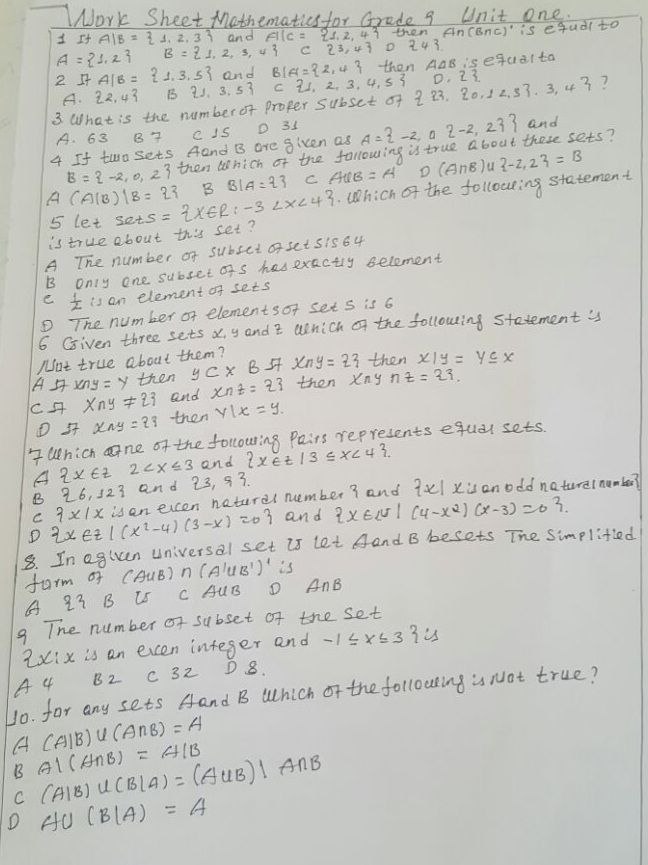 Work Sheet Mathematics for Grade 9 Unit One.
1 If A\B = {1, 2, 3} and A\C = {1, 2, 4} then A∩(B∩C)' is equal to
A = {1, 2} B = {1, 2, 3, 4} C {3, 4} D {4}.
2 If A\B = {1, 3, 5} and B\A = {2, 4} then A∆B is equal to
A. {2, 4} B {1, 3, 5} C {1, 2, 3, 4, 5} D. { }.
3 What is the number of proper subset of { { }. {0, 1 2, 5}. 3, 4 } ?
A. 63 B 7 C 15 D 31
4 If two sets A and B are given as A = { -2, 0 {-2, 2}} and
B = {-2, 0, 2} then which of the following is true about these sets?
A (A\B)\B = { } B B\A = { } C A∪B = A D (A∩B)∪{-2, 2} = B
5 let set S = {x∈R : -3 < x < 4}. Which of the following statement
is true about this set?
A The number of subset of set S is 64
B only one subset of S has exactly 6 element
C ½ is an element of set S
D The number of elements of set S is 6
6 Given three sets x, y and z which of the following statement is
Not true about them?
A If x∩y = y then y⊂x B If x∩y = { } then x\y = y⊆x
C If x∩y ≠ { } and x∩z = { } then x∩y∩z = { }.
D If x∩y = { } then y\x = y.
7 Which one of the following pairs represents equal sets.
A {x∈z 2<x≤3 and {x∈z | 3≤x<4}.
B {6, 12} and {3, 9}.
C {x|x is an even natural number} and {x| x is an odd natural number}
D {x∈z | (x²-4)(3-x) = 0} and {x∈N | (4-x²)(x-3) = 0}.
8. In a given universal set U let A and B be sets The simplified
form of (A∪B)∩(A'∪B')' is
A { } B U C A∪B D A∩B
9 The number of subset of the set
{x:x is an even integer and -1≤x≤3} is
A 4 B 2 C 32 D 8.
10. for any sets A and B which of the following is Not true?
A (A\B)∪(A∩B) = A
B A\(A∩B) = A\B
C (A\B)∪(B\A) = (A∪B)\ A∩B
D A∪(B\A) = A